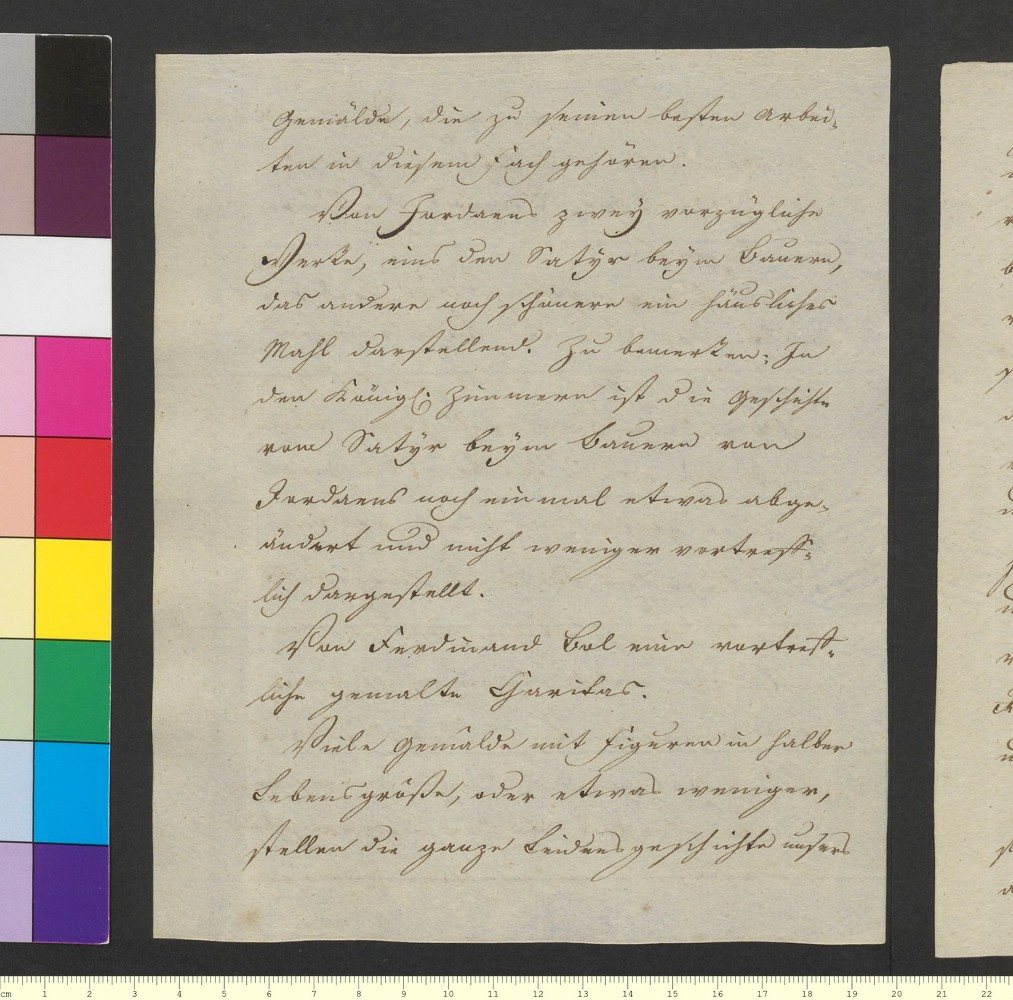 Gemälde, die zu seinen besten Arbei-
ten in diesem Fach gehören.
Von Jordaens zwey vorzügliche
Werke, eins den Satÿr beÿm Bauern,
das andere noch schönere ein häusliches
Mahl darstellend. Zu bemerken: In
den Königl. Zimmern ist die Geschichte
vom Satÿr beÿm Bauern von
Jordaens noch einmal etwas abge-
ändert und nicht weniger vortreff-
lich dargestellt.
Von Ferdinand Bol eine vortreff-
liche gemalte Charitas.
Viele Gemälde mit Figuren in halber
Lebensgröße, oder etwas weniger,
stellen die ganze Leidensgeschichte unsers
cm 1 2 3 4 5 6 7 8 9 10 11 12 13 14 15 16 17 18 19 20 21 22